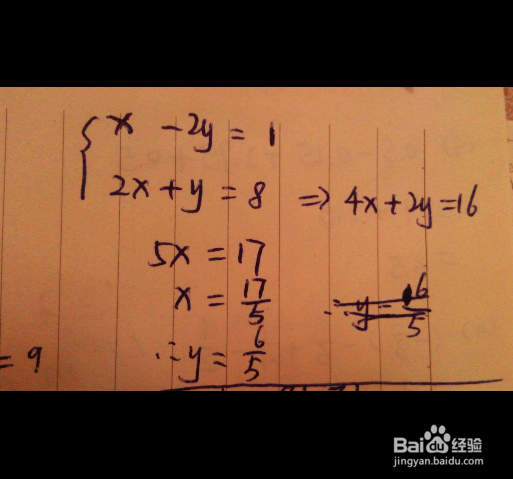 x - 2y = 1
2x + y = 8 ⇒ 4x + 2y = 16
5x = 17
x = 17/5
∴ y = 6/5
= 9
Baidu 经验
jingyan.baidu.com